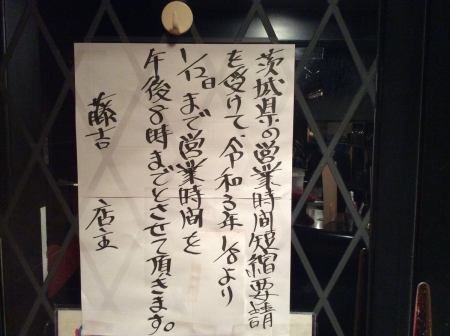 茨城県の営業時間短縮要請
を受けて、令和3年1/8より
1/12日まで営業時間を
午後8時までとさせて頂きます。
藤吉 店主